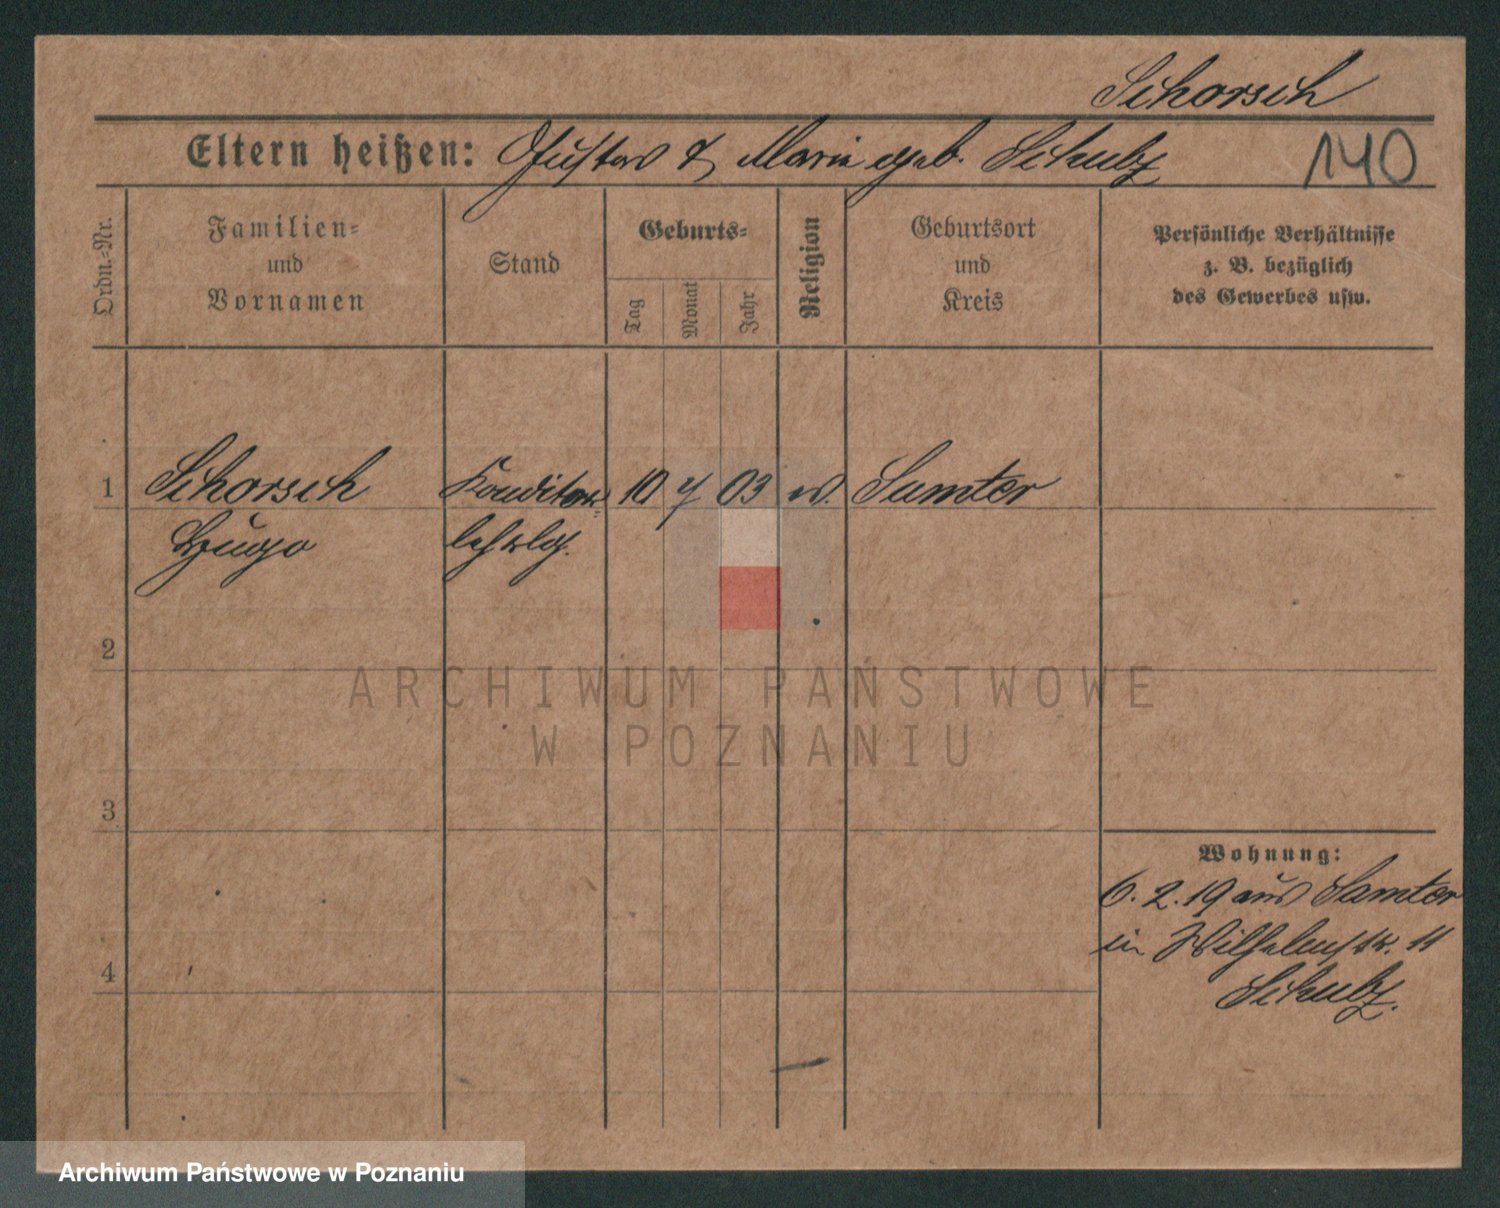 Schorsch
Eltern heißen: Gustav & Marie geb. Schulz
140
Ordn.-Nr.
Familien-
und
Vornamen
Stand
Geburts-
Tag
Monat
Jahr
Religion
Geburtsort
und
Kreis
Persönliche Verhältnisse
z. B. bezüglich
des Gewerbes usw.
1 Schorsch Konditor- 10 7 03 ev. Samter
Hugo lehrlg.
2
3
4
Wohnung:
6.2.19 aus Samter
in Wilhelmstr. 11
Schulz.
ARCHIWUM PAŃSTWOWE
W POZNANIU
Archiwum Państwowe w Poznaniu